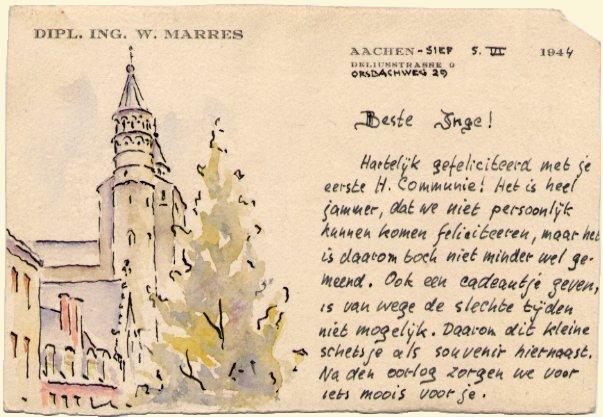 DIPL. ING. W. MARRES
AACHEN-SIEF 5. VI 1944
DELIUSSTRASSE 9
ORSBACHWEG 29
Beste Inge!
Hartelijk gefeliciteerd met je
eerste H. Communie! Het is heel
jammer, dat we niet persoonlijk
kunnen komen feliciteeren, maar het
is daarom toch niet minder wel ge-
meend. Ook een cadeautje geven,
is van wege de slechte tijden
niet mogelijk. Daarom dit kleine
schetsje als souvenir hiernaast.
Na den oorlog zorgen we voor
iets moois voor je.